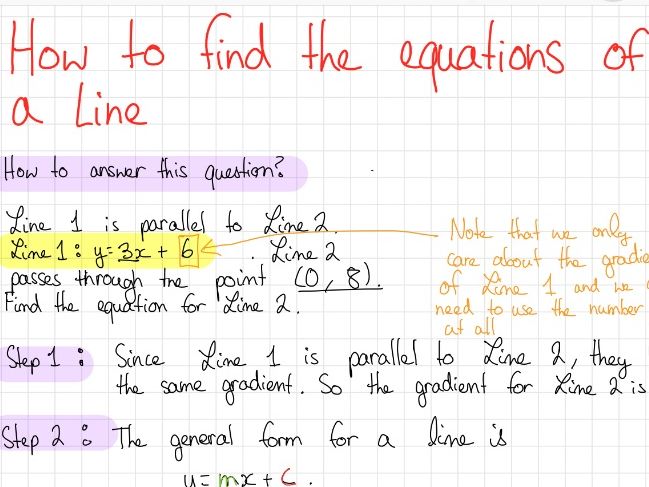 How to find the equations of
a Line
How to answer this question?
Line 1 is parallel to Line 2.
Line 1 : y = 3x + 6 . Line 2
passes through the point (0, 8).
Find the equation for Line 2.
Note that we only
care about the
of Line 1 and we
need to use the number
at all
Step 1 : Since Line 1 is parallel to Line 2, they
the same gradient. So the gradient for Line 2 is
Step 2 : The general form for a line is
y = mx + c .